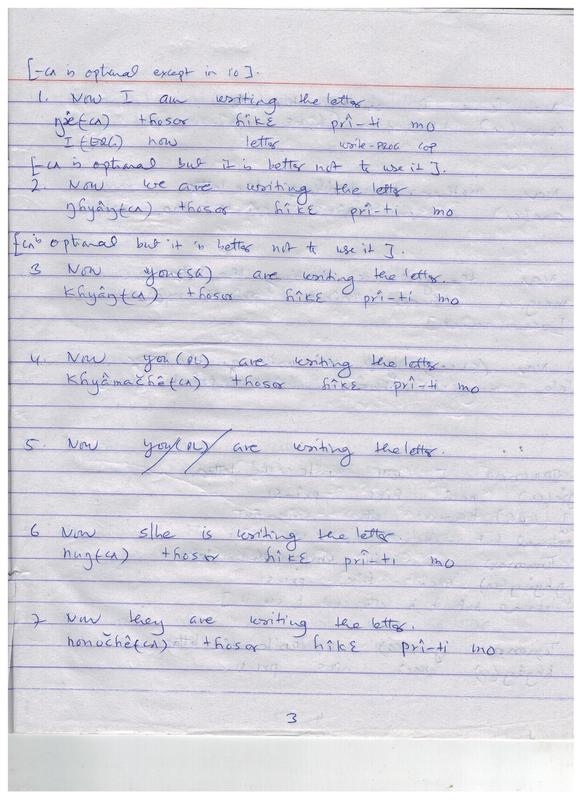 [-cʌ is optional except in 10].
1. Now I am writing the letter
ŋxê(cʌ) thosor ĥîkɛ prî-ti mo
I (ERG) now letter write-PROG cop
[-cʌ is optional but it is better not to use it].
2. Now we are writing the letter.
ŋhyâŋ(cʌ) thosor ĥîkɛ prî-ti mo
[cʌ is optional but it is better not to use it].
3 Now you(SG) are writing the letter.
khyâŋ(cʌ) thosor ĥîkɛ prî-ti mo
4. Now you(PL) are writing the letter.
khyâmačhê(cʌ) thosor ĥîkɛ prî-ti mo
5. Now you(PL) are writing the letter.
6 Now s/he is writing the letter.
huŋ(cʌ) thosor ĥîkɛ prî-ti mo
7 Now they are writing the letter.
honočhê(cʌ) thosor ĥîkɛ prî-ti mo
3